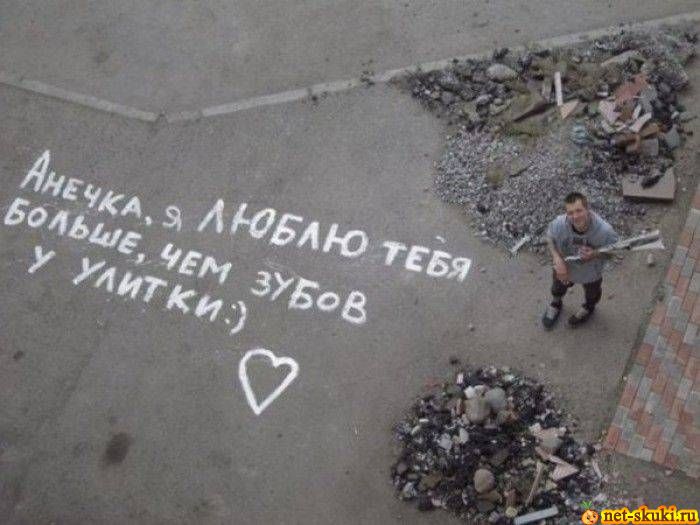 Анечка, я люблю тебя
больше, чем зубов
у улитки:)
net-skuki.ru